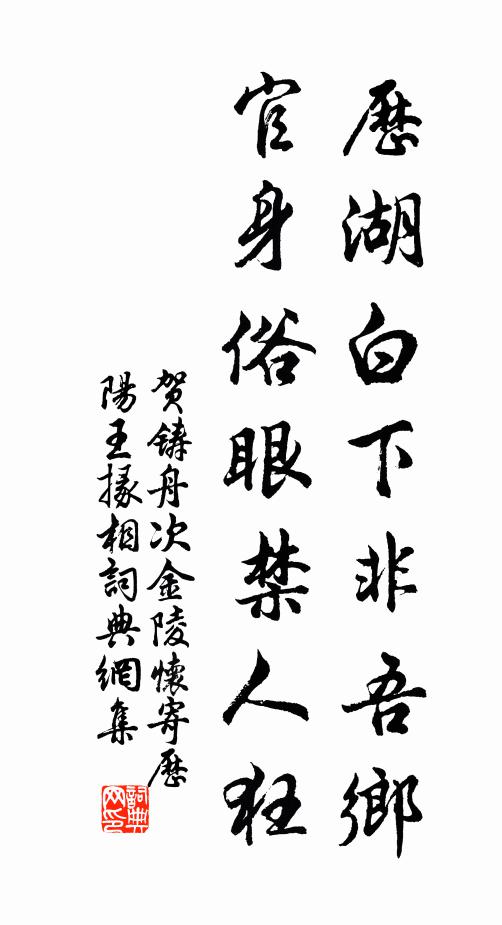 歷湖白下非吾鄉
官身俗眼禁人狂
賀鑄舟次金陵懷寄歷
陽王掾相詞典網集
詞典
网印